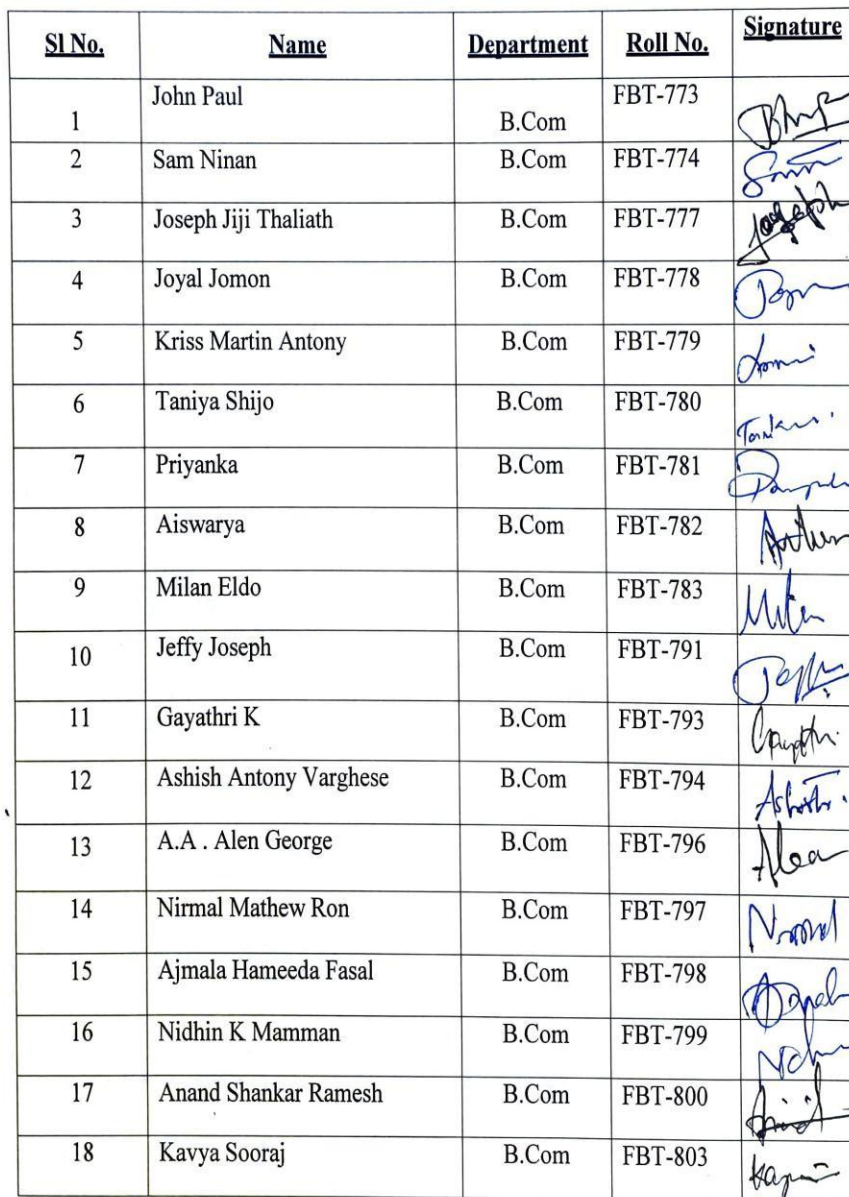 Sl No. Name Department Roll No. Signature
1 John Paul B.Com FBT-773
2 Sam Ninan B.Com FBT-774
3 Joseph Jiji Thaliath B.Com FBT-777 Joseph
4 Joyal Jomon B.Com FBT-778
5 Kriss Martin Antony B.Com FBT-779
6 Taniya Shijo B.Com FBT-780
7 Priyanka B.Com FBT-781
8 Aiswarya B.Com FBT-782
9 Milan Eldo B.Com FBT-783
10 Jeffy Joseph B.Com FBT-791
11 Gayathri K B.Com FBT-793
12 Ashish Antony Varghese B.Com FBT-794
13 A.A . Alen George B.Com FBT-796
14 Nirmal Mathew Ron B.Com FBT-797
15 Ajmala Hameeda Fasal B.Com FBT-798
16 Nidhin K Mamman B.Com FBT-799
17 Anand Shankar Ramesh B.Com FBT-800
18 Kavya Sooraj B.Com FBT-803